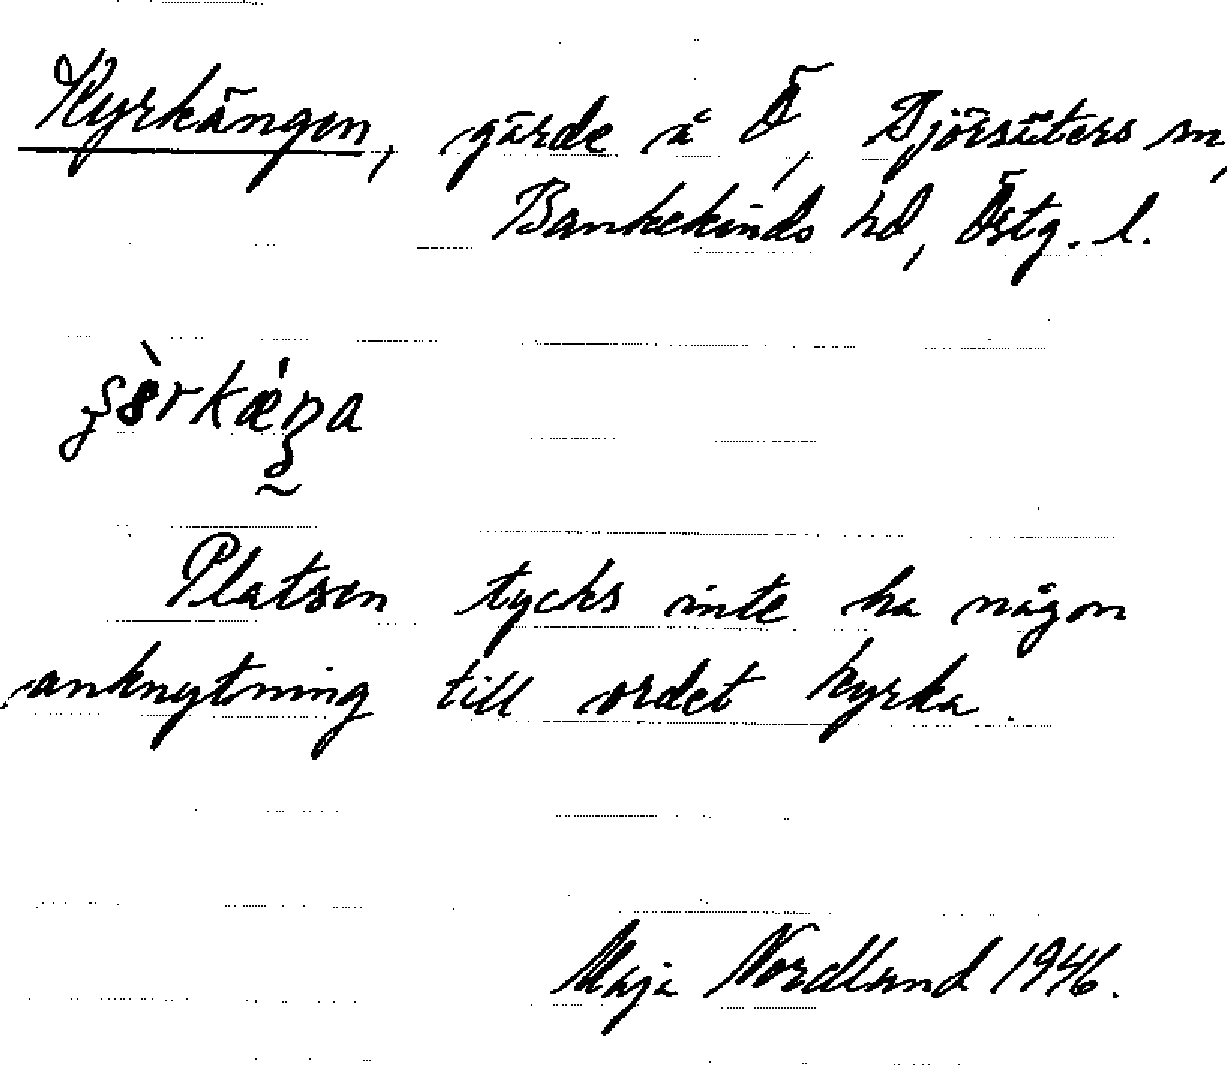 Kyrkängen, gärde å Ö, Björsäters sn,
Bankekinds hd, Östg. l.
Platsen tycks inte ha någon
anknytning till ordet kyrka.
Maja Nordlund 1946.